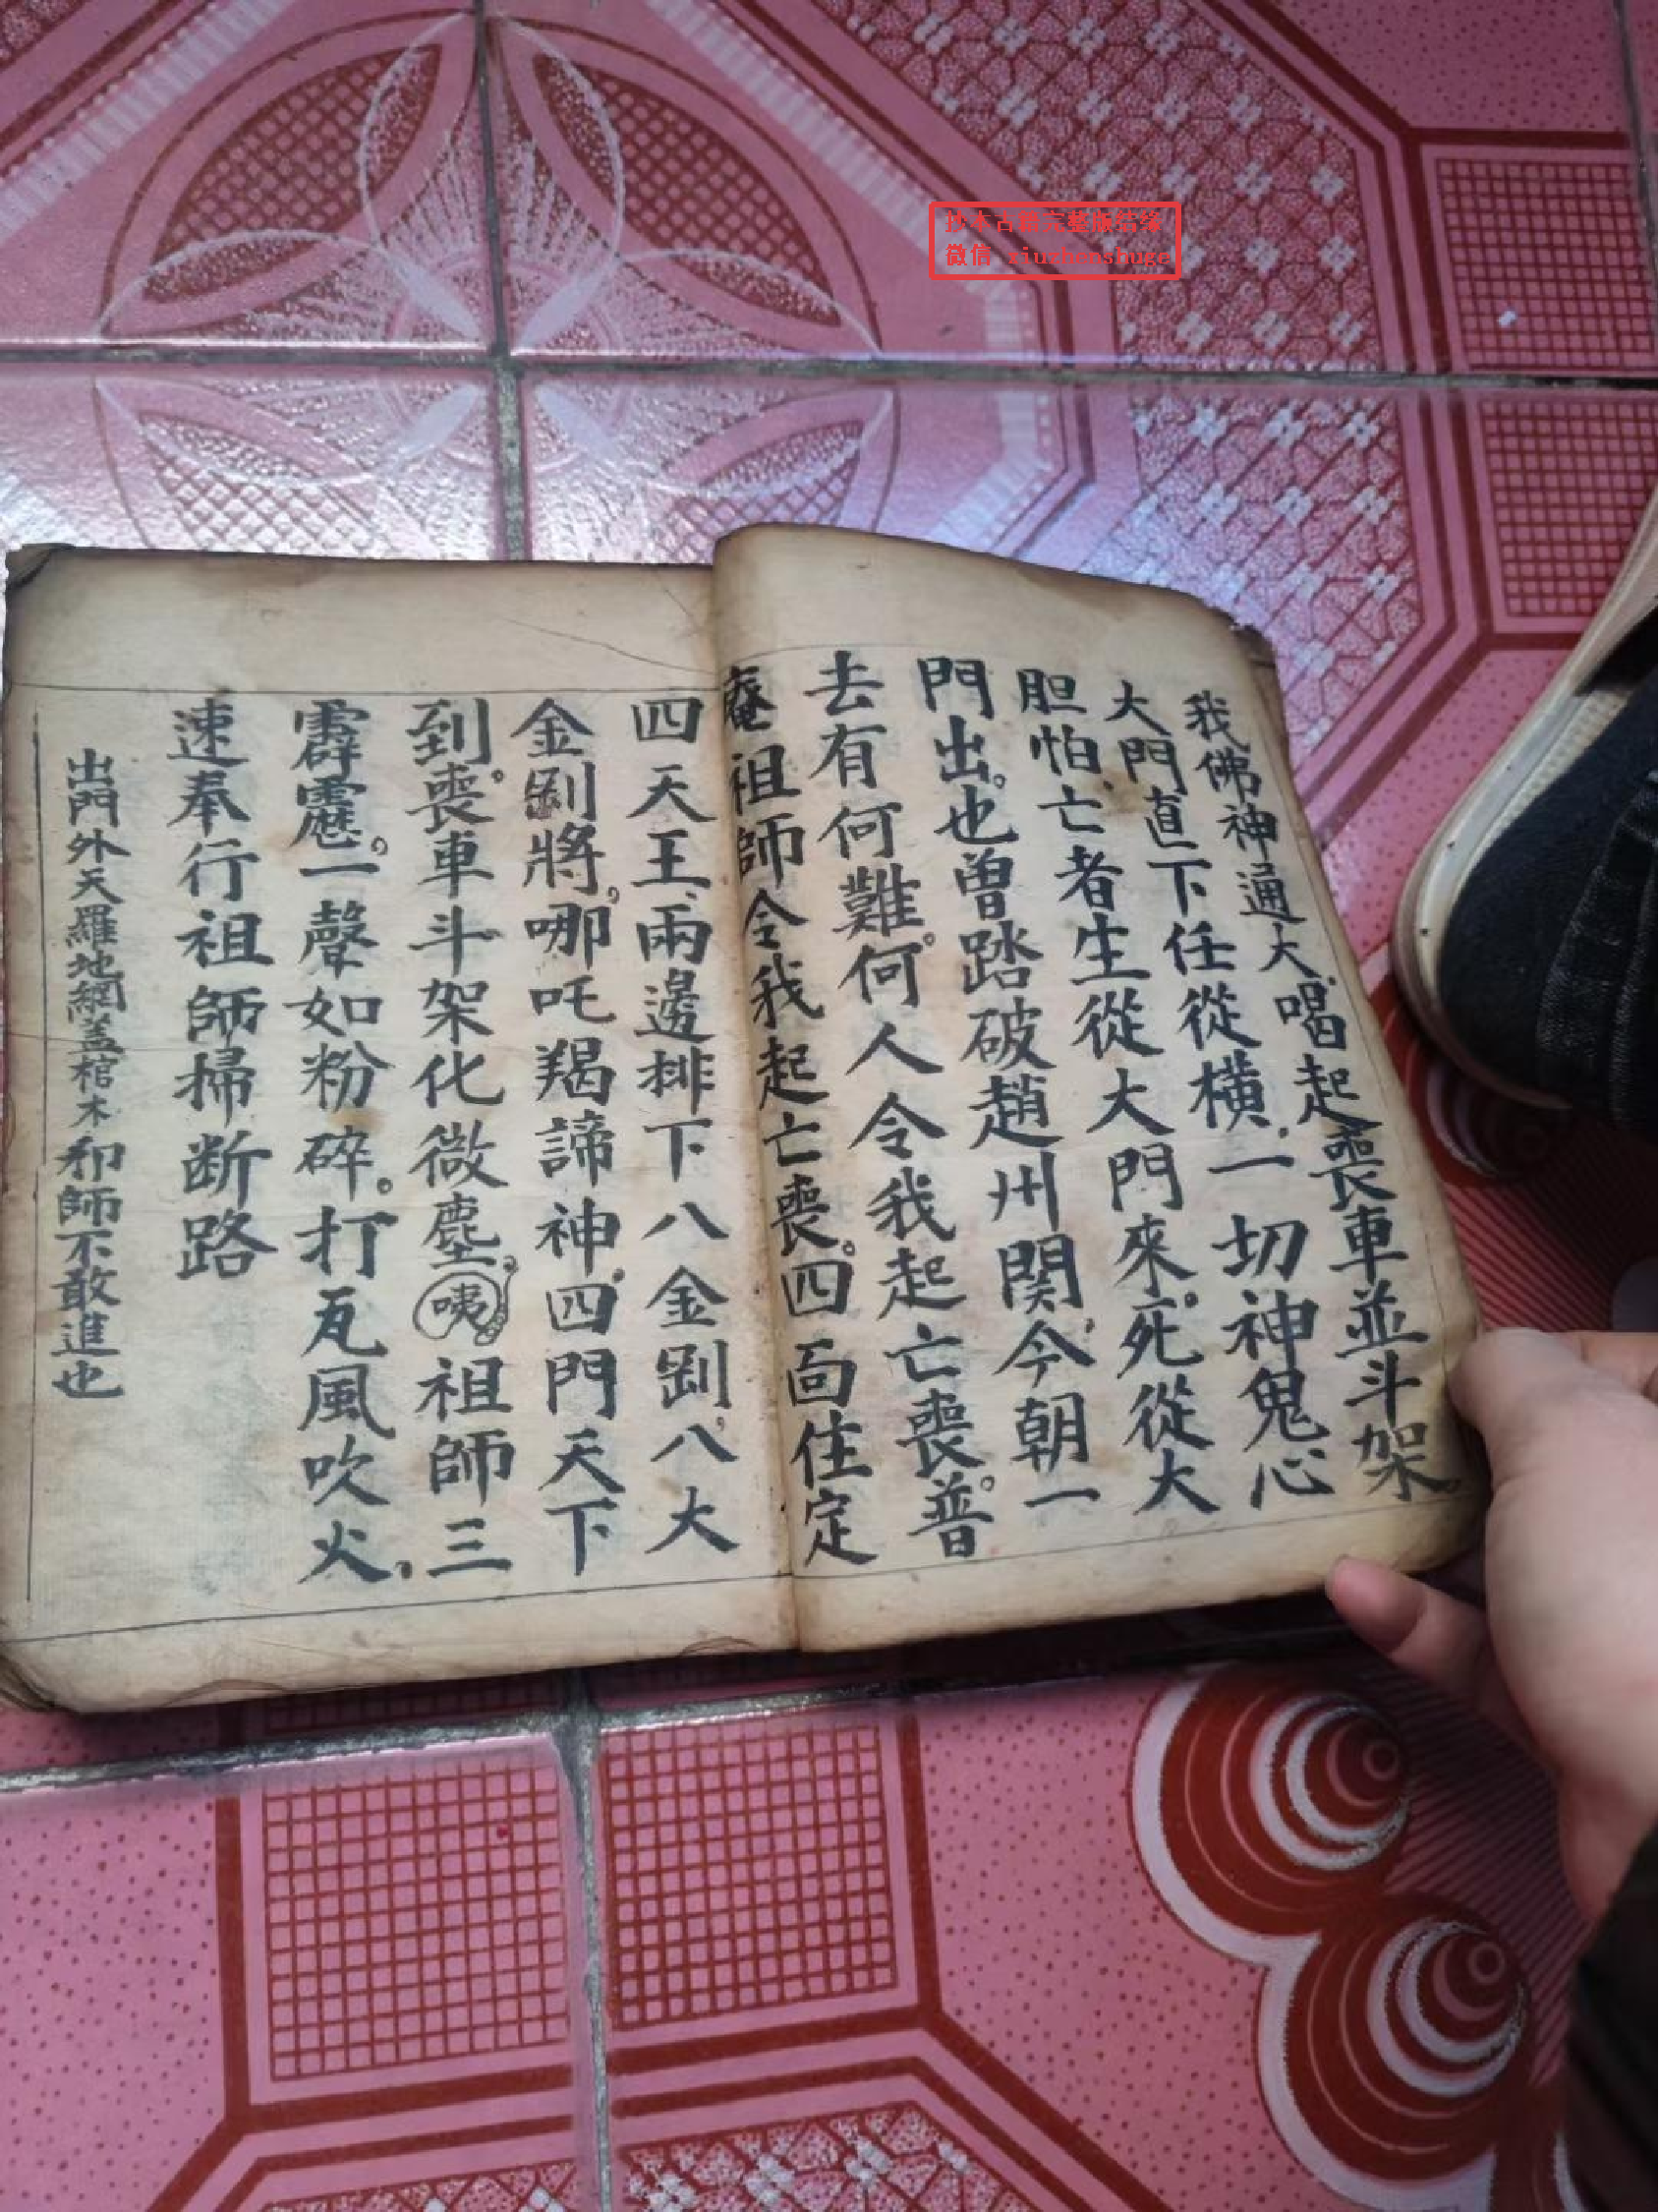 抄本古籍完整版结缘
微信 xiuzhenshuge
我佛神通大喝起喪車並斗架
大門直下任從橫一切神鬼心
胆怕亡者生從大門來死從大
門出也曾踏破趙州関今朝一
去有何難何人令我起亡喪普
庵祖師令我起亡喪四面住定
四天王兩邊排下八金剛八大
金剛將哪吒羯諦神四門天下
到喪車斗架化微塵咦祖師三
霹靂一聲如粉碎打瓦風吹火
速奉行祖師掃断路
出門外天羅地網盖棺木邪師不敢進也